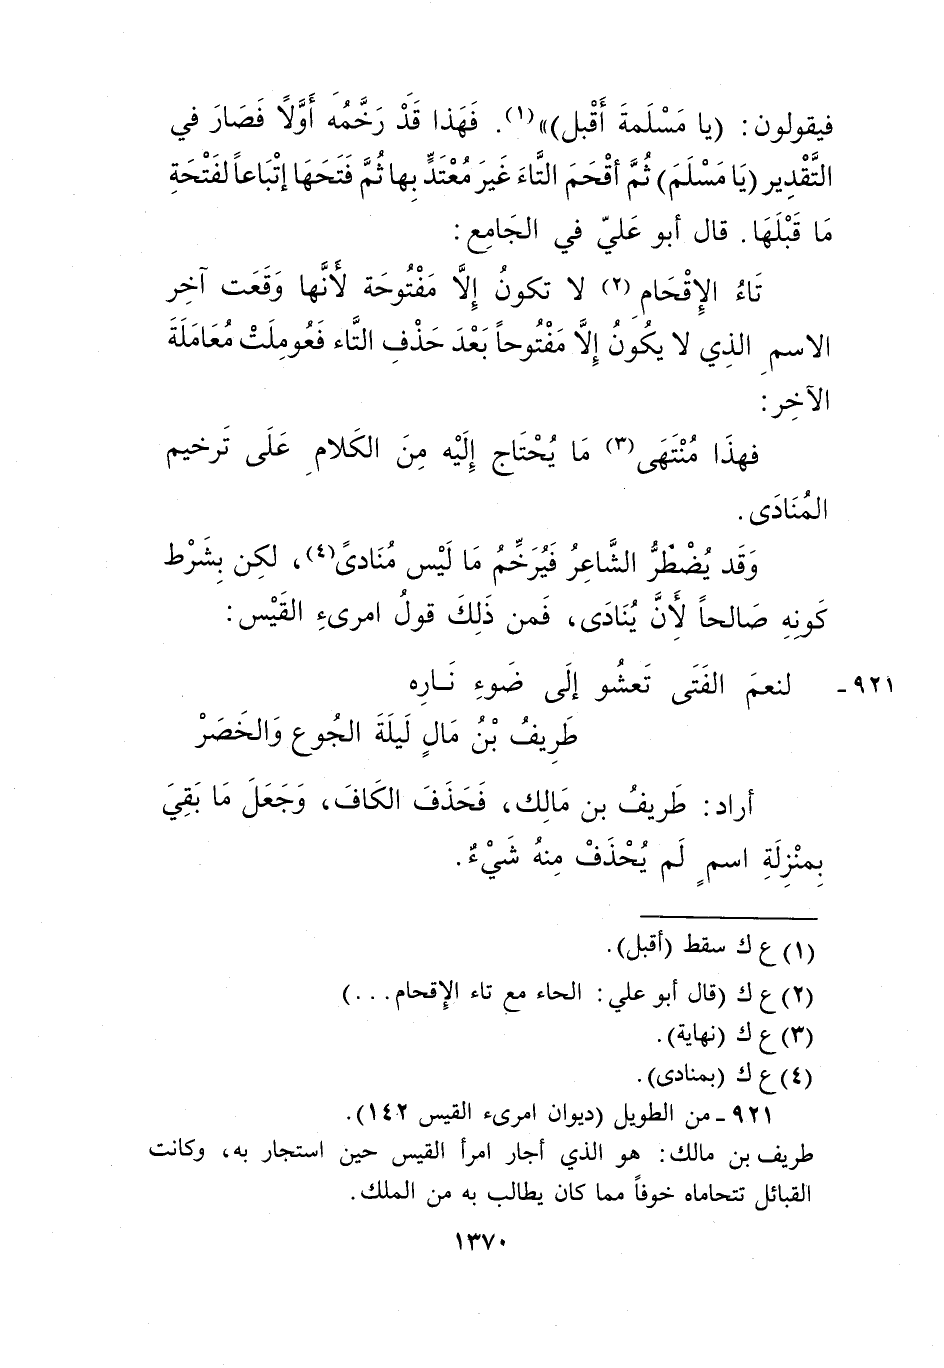 فيقولون: (يا مَسْلَمةَ أَقْبل)»(١). فَهَذا قَدْ رَخَّمُه أَوَّلًا فَصَارَ في
التَّقْدِير (يَا مَسْلَمَ) ثُمَّ أقْحَمَ التَّاءَ غَيرَ مُعْتَدٍّ بِها ثُمَّ فَتَحَهَا إتْبَاعاً لفَتْحَةِ
مَا قَبْلَهَا. قال أبو عَليّ في الجَامِع:
تَاءُ الإِقْحَام(٢) لا تكونُ إِلَّا مَفْتُوحَة لأَنَّها وَقَعَت آخِر
الاسمِ الذِي لا يكُونُ إِلَّا مَفْتُوحاً بَعْدَ حَذْفِ التَّاء فَعُومِلَتْ مُعَامَلَةَ
الآخِر:
فهذَا مُنْتَهَى(٣) مَا يُحْتَاج إِلَيْه مِنَ الكَلامِ عَلَى تَرخيم
المُنَادَى.
وَقَد يُضْطَرُّ الشَّاعِرُ فَيُرَخِّمُ مَا لَيْس مُنَادىً(٤)، لكِن بِشَرْط
كَونِهِ صَالحاً لأَنَّ يُنَادَى، فَمن ذَلِكَ قولُ امرىءِ القَيْس:
٩٢١- لنعمَ الفَتَى تَعشُو إلَى ضَوءِ نَـارِه
طَرِيفُ بْنُ مَالٍ لَيلَةَ الجُوع وَالخَصَرْ
أراد: طَريفُ بن مَالِك، فَحَذَفَ الكَافَ، وَجَعَلَ مَا بَقِيَ
بِمنْزِلَةِ اسمٍ لَم يُحْذَفْ مِنهُ شَيْءٌ.
(١) ع ك سقط (أقبل).
(٢) ع ك (قال أبو علي: الحاء مع تاء الإقحام...)
(٣) ع ك (نهاية).
(٤) ع ك (بمنادى).
٩٢١- من الطويل (ديوان امرىء القيس ١٤٢).
طريف بن مالك: هو الذي أجار امرأ القيس حين استجار به، وكانت
القبائل تتحاماه خوفاً مما كان يطالب به من الملك.
١٣٧٠